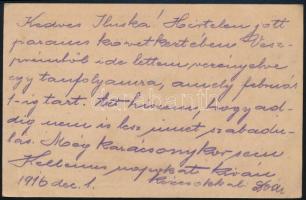 Kedves Iluska! Hirtelen jött
parancs következtében Vesz-
prémből ide lettem vezényelve
egy tanfolyamra, amely február
1-ig tart. Azt hiszem, hogy ad-
dig nem is lesz innet szabadu-
lás. Még karácsonykor sem
Kellemes napokat kíván
1916 dec. 1. kézcsókkal